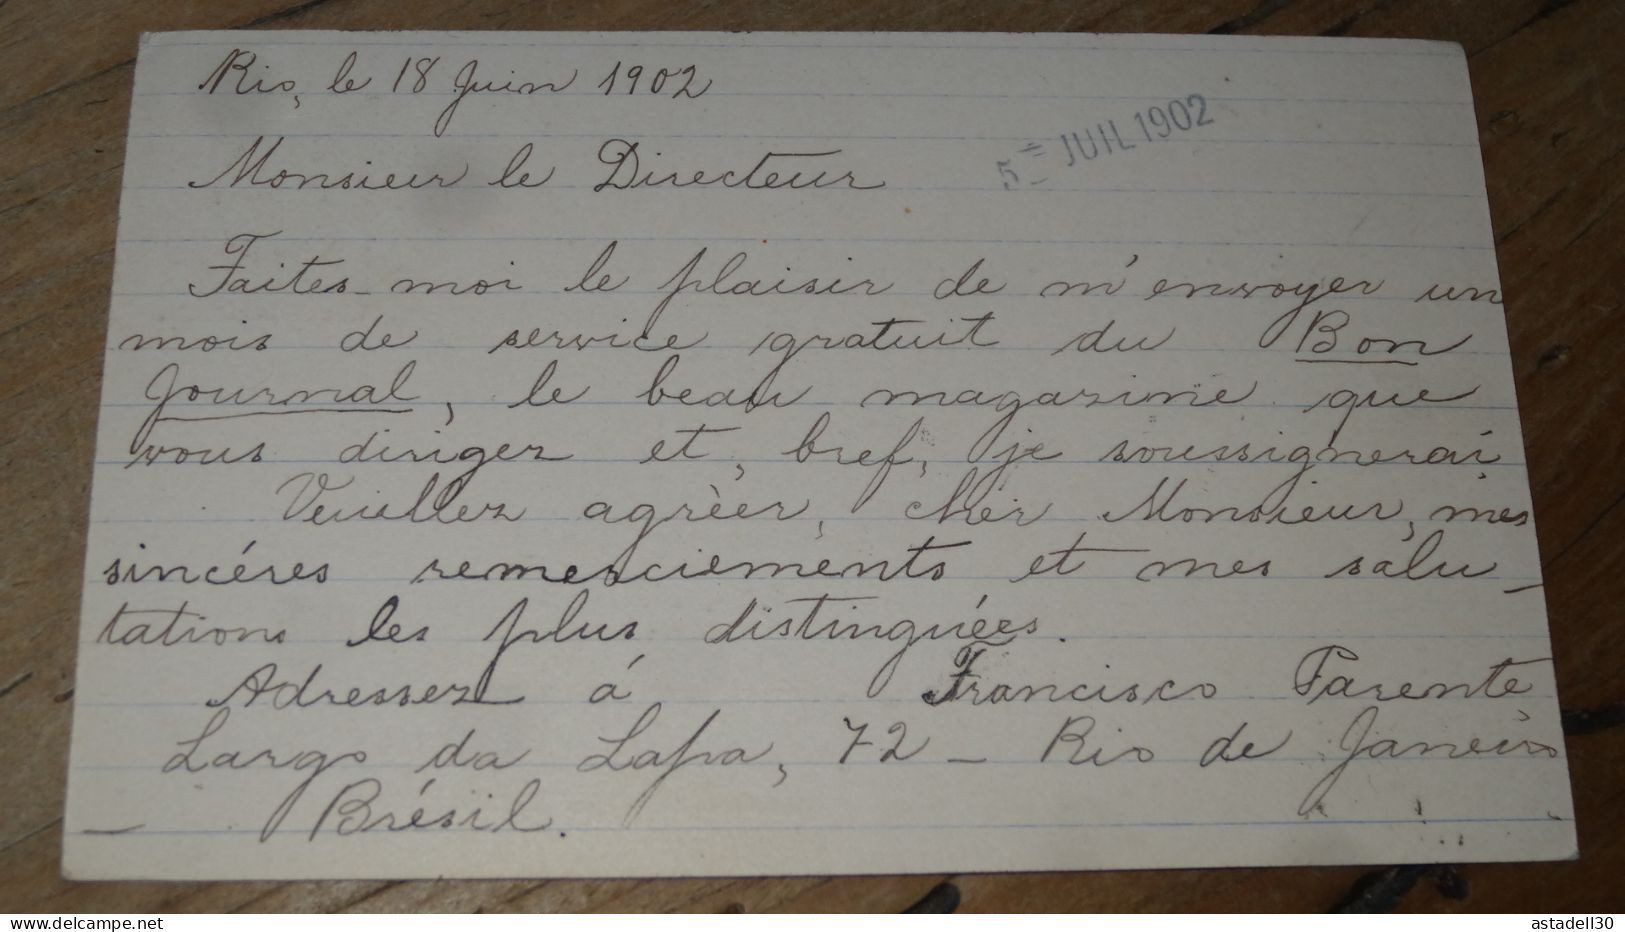 Rio, le 18 Juin 1902
5 = JUIL 1902
Monsieur le Directeur
Faites-moi le plaisir de m'envoyer un
mois de service gratuit du Bon
Journal, le beau magazine que
vous diriger et, bref, je soussignerai
Veuillez agrèer, cher Monsieur, mes
sincéres remerciements et mes salu-
tations les plus distinguées.
Adressez á Francisco Parente,
Largo da Lapa, 72 - Rio de Janeiro
- Brésil.
astadell30